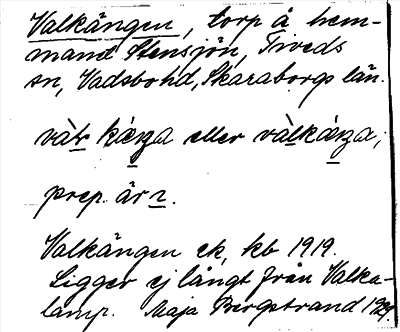 Valkängen, torp å hem-
mand Stensjön, Tiveds
sn, Vadsbo hd, Skaraborgs län.
eller
prep. är i.
Valkängen ek, kb 1919.
Ligger ej långt från Valka-
lamp. Maja Bergstrand 1924.